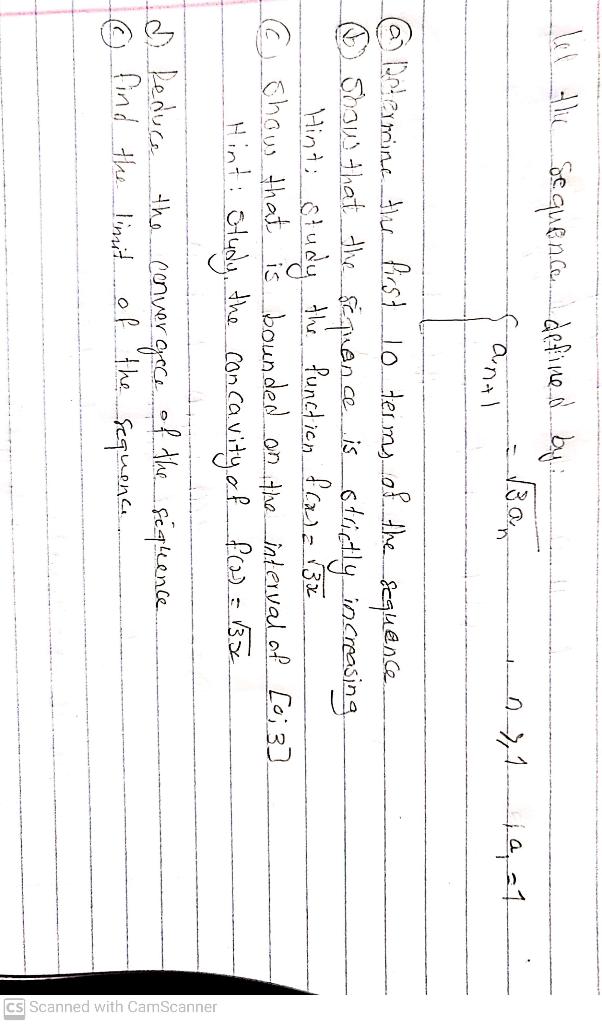 let the sequence defined by:
{ aₙ₊₁ = √3aₙ , n ⩾ 1 ; a₁ = 1
(a) Determine the first 10 terms of the sequence
(b) Show that the sequence is strictly increasing
Hint: study the function f(x) = √3x
(c) Show that is bounded on the interval of [0; 3]
Hint: study the concavity of f(x) = √3x
(d) Deduce the convergece of the sequence
(e) find the limit of the sequence.
CS Scanned with CamScanner